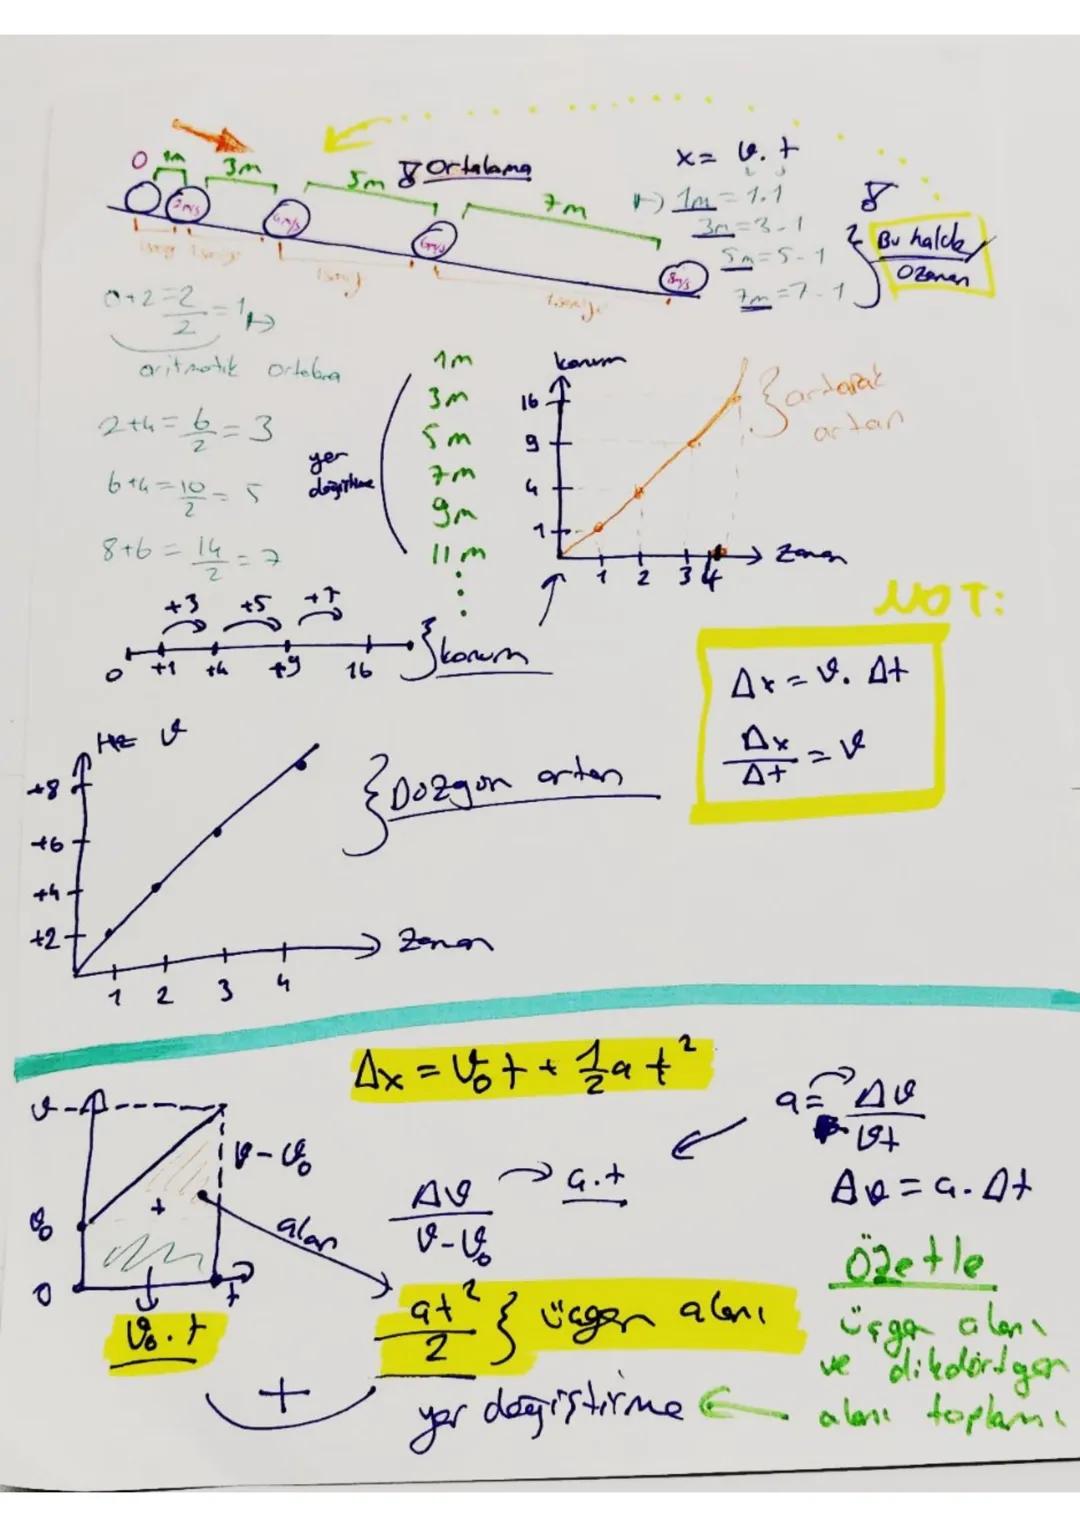 0 1m 3m 5m Ortalama 7m
2m/s 4m/s 6m/s 8m/s
1 saniye 1 saniye
x = v. t
1m = 1.1
3m = 3.1
5m = 5-1
7m = 7-1
Bu halde
0+2=2/2=1
aritmetik
2+4=6/2=3
6+4=10/2=5
8+6=14/2=7
yer
değiştirme
1m
3m
5m
7m
9m
11m
konum
16
9
4
1
1 2 3 4 Zaman
artarak
artan
+3 +5 +7
0 +1 +4 +9 16
konum
NOT:
Δx = v. Δt
Δx/Δt = v
Hız v
+8
+6
+4
+2
1 2 3 4
Zaman
Düzgün artan
Δx = v₀t + 1/2 at²
v
v-v₀
v₀
0
t
alan
v₀.t
Δv/v-v₀ → a.t
a = Δv/vt
Δv = a. Δt
at²/2 } üçgen alanı
+
yer değiştirme
Özetle
üçgen alanı
ve dikdörtgen
alanı toplamı